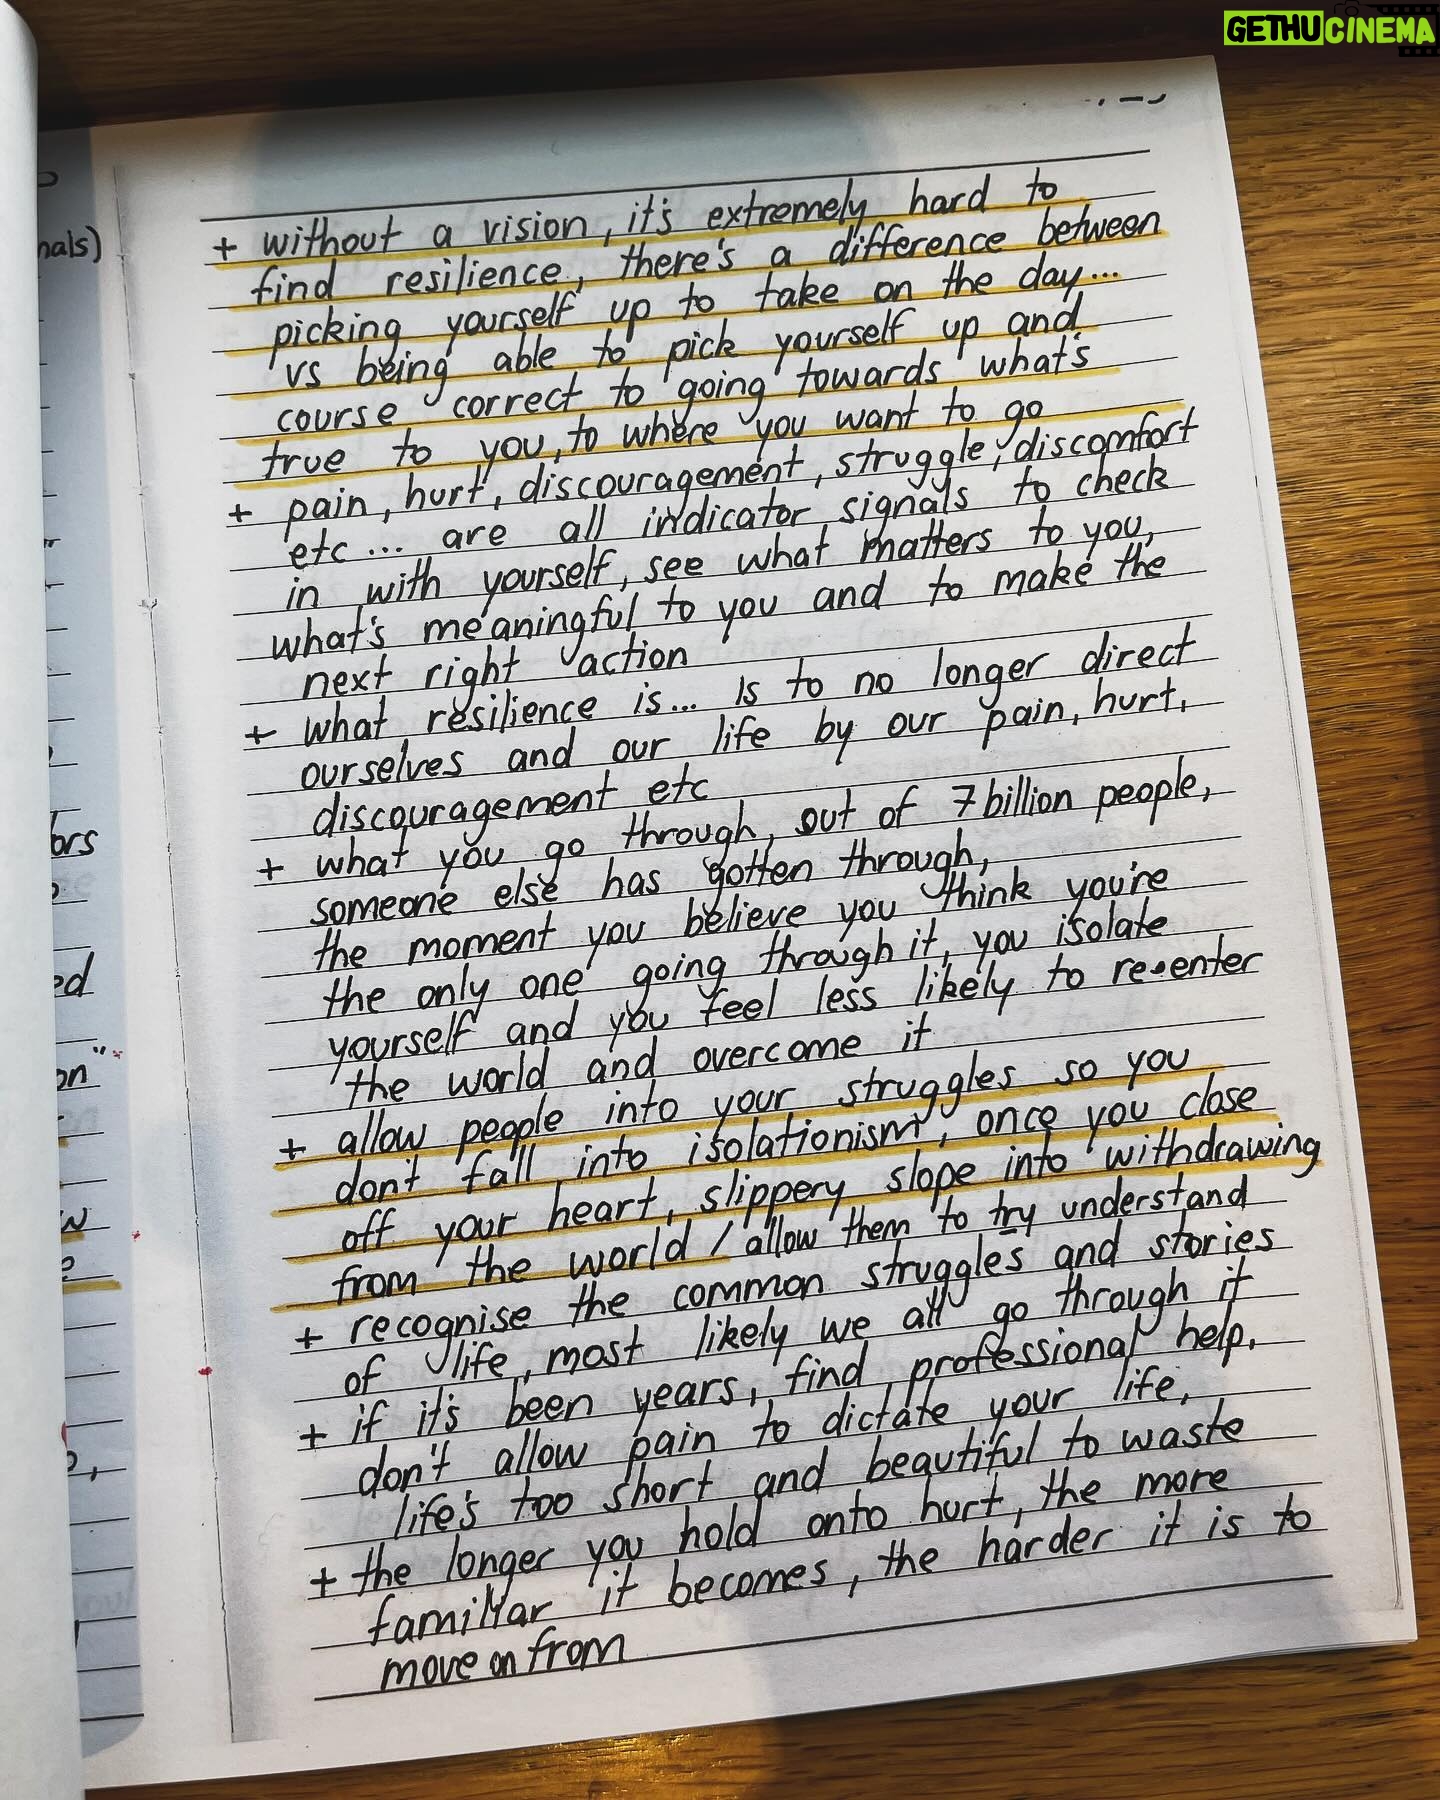 GETHUCINEMA
nals)
+ without a vision, it's extremely hard to
find resilience, there's a difference between
picking yourself up to take on the day...
vs being able to pick yourself up and
course correct to going towards what's
true to you, to where you want to go
+ pain, hurt, discouragement, struggle, discomfort
etc... are all indicator signals to check
in with yourself, see what matters to you,
what's meaningful to you and to make the
next right action
+ what resilience is... Is to no longer direct
ourselves and our life by our pain, hurt,
discouragement etc
+ what you go through, out of 7 billion people,
someone else has gotten through,
the moment you believe you think you're
the only one going through it, you isolate
yourself and you feel less likely to re-enter
the world and overcome it
+ allow people into your struggles so you
don't fall into isolationism, once you close
off your heart, slippery slope into withdrawing
from the world / allow them to try understand
+ recognise the common struggles and stories
of life, most likely we all go through it
+ if it's been years, find professional help,
don't allow pain to dictate your life,
life's too short and beautiful to waste
+ the longer you hold onto hurt, the more
familiar it becomes, the harder it is to
move on from
ors
ed
on"
w